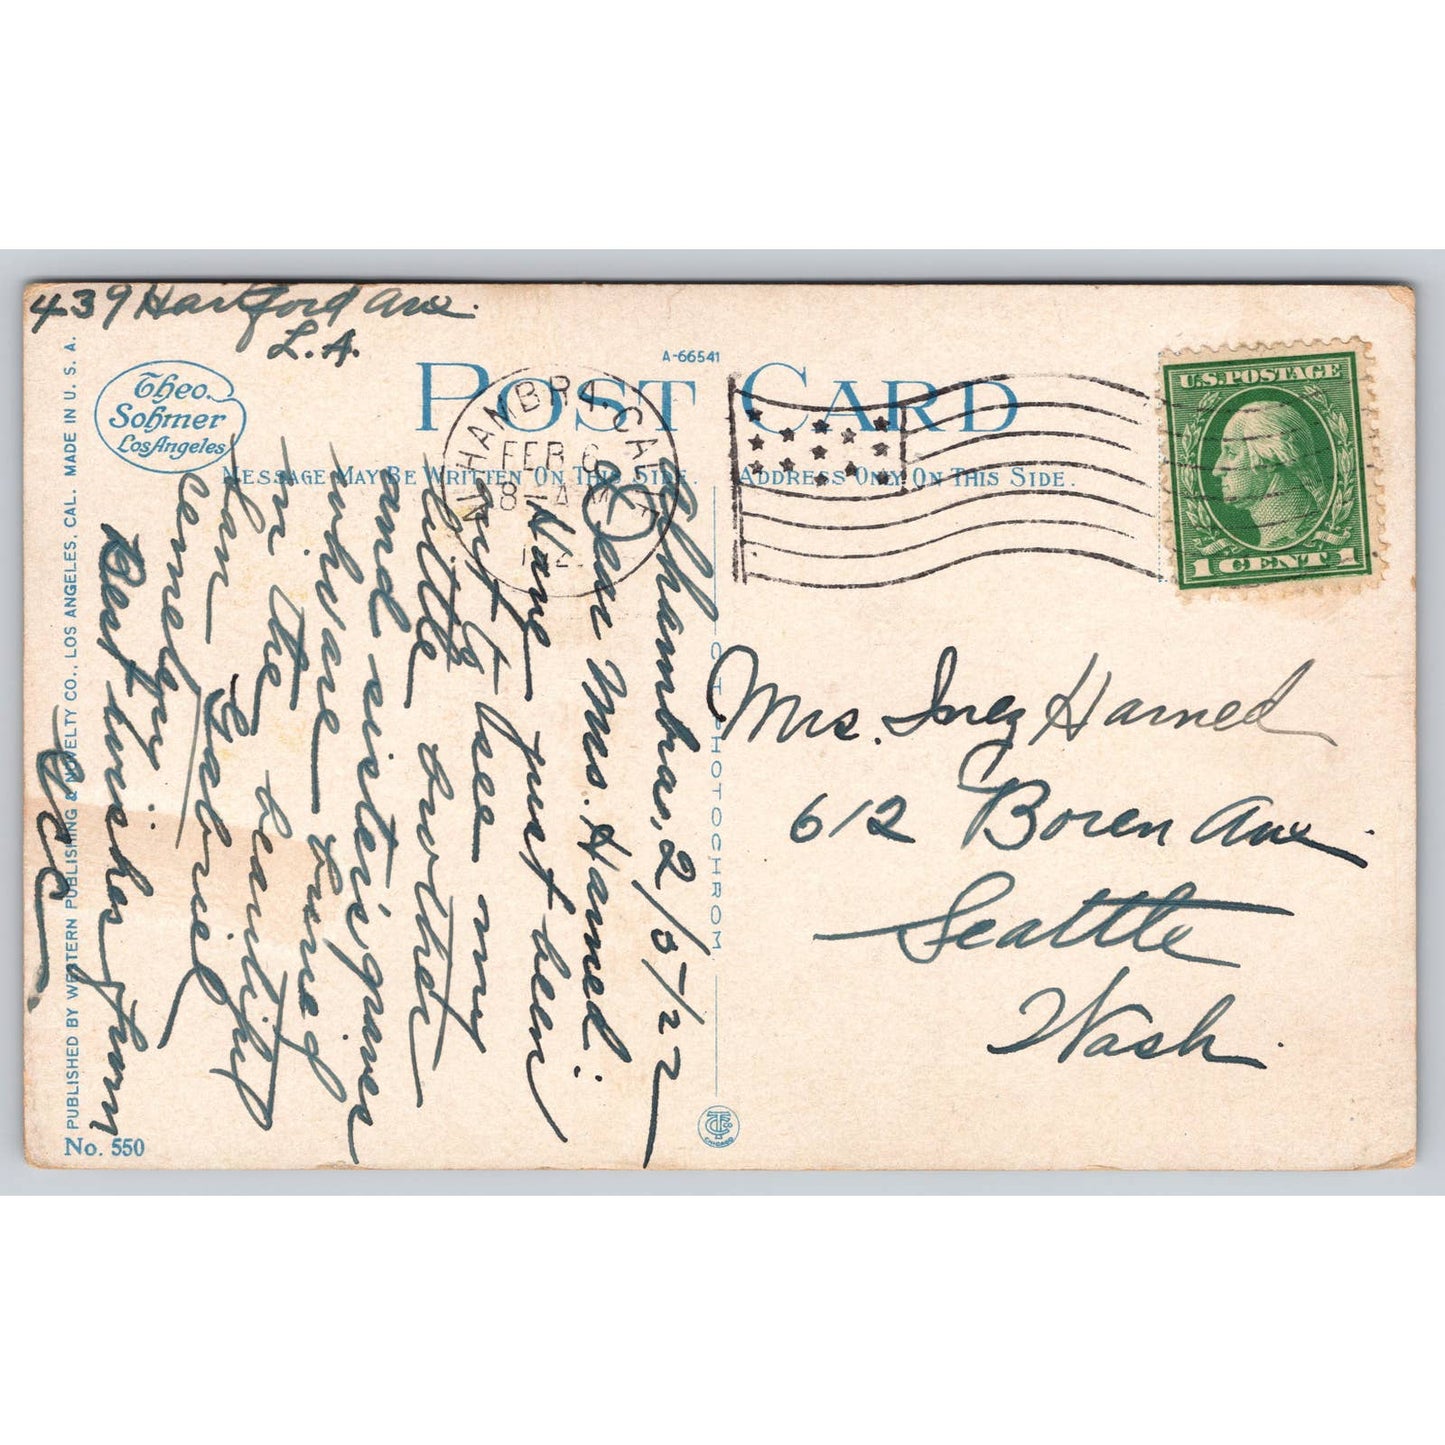 439 Hartford Ave.
L.A.
Theo. Sohmer Los Angeles
A-66541
POST CARD
ALHAMBRA, CALIF.
FEB 6
8-AM
192
MESSAGE MAY BE WRITTEN ON THIS SIDE.
ADDRESS ONLY ON THIS SIDE.
U.S. POSTAGE
1 CENT 1
Alhambra, 2/5/22
Dear Mrs. Harned:
Have just been
out to see my
little brother
and sister; graves
who are buried
in the beautiful
San Gabriel
Cemetery
Best wishes from
Mrs. Inez Harned
612 Boren Ave.
Seattle
Wash.
C.T. PHOTOCHROM
CHICAGO
PUBLISHED BY WESTERN PUBLISHING & NOVELTY CO., LOS ANGELES, CAL. MADE IN U. S. A.
No. 550